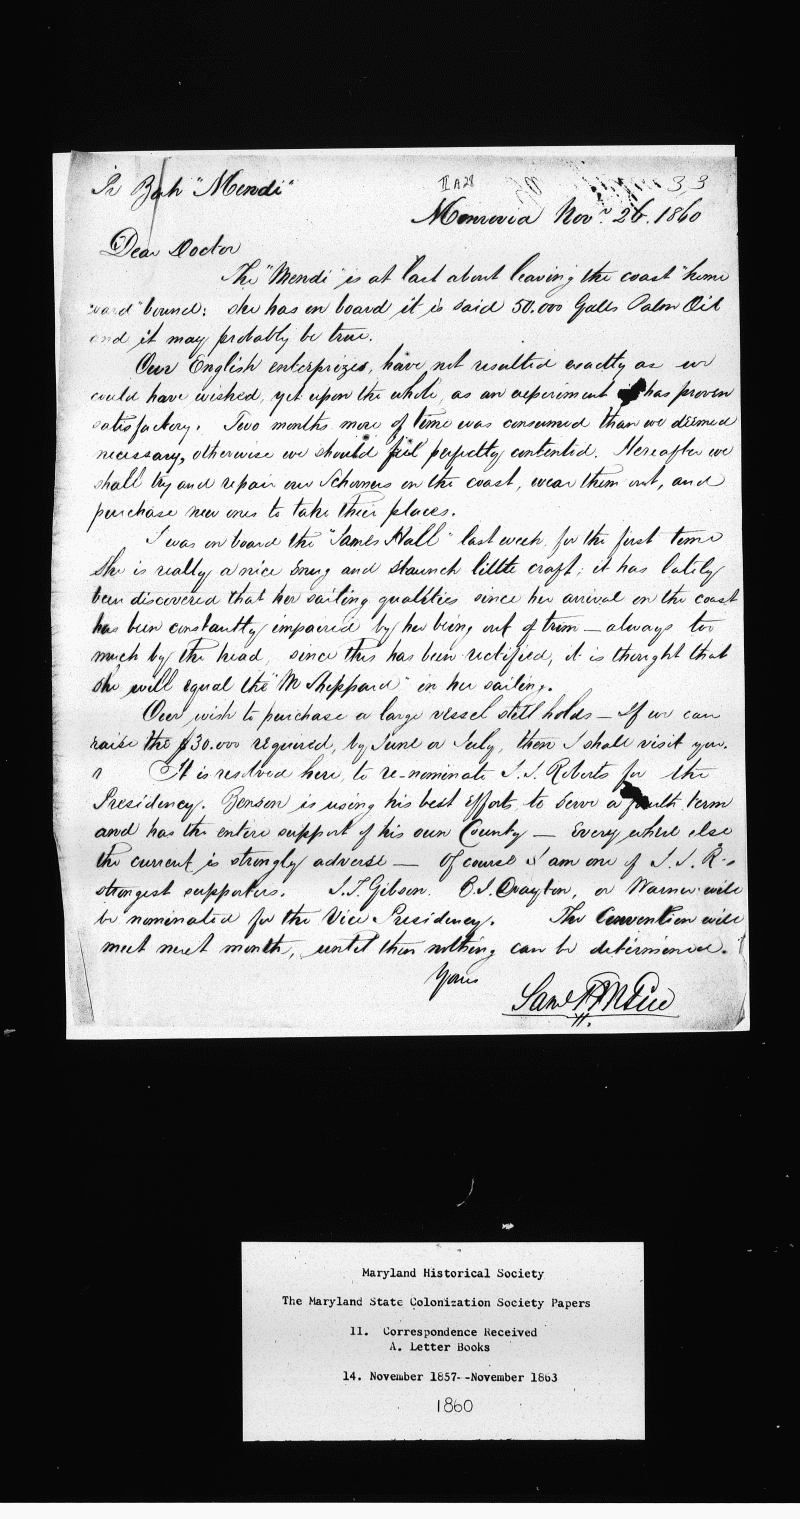 Pr Bark "Mendi"
II A 28
33
Monrovia Novr. 26. 1860
Dear Doctor
The "Mendi" is at last about leaving the coast "home
ward" bound; she has on board it is said 50.000 Galls Palm Oil
and it may probably be true.
Our English enterprizes, have not resulted exactly as we
could have wished, yet upon the whole, as an experiment has proven
satisfactory. Two months more of time was consumed than we deemed
necessary, otherwise we should feel perfectly contented. Hereafter we
shall try and repair our Schooners on the coast, wear them out, and
purchase new ones to take their places.
I was on board the "James Hall" last week, for the first time
She is really a nice snug and staunch little craft; it has lately
been discovered that her sailing qualities since her arrival on the coast
has been constantly impaired by her being out of trim – always too
much by the head, since this has been rectified, it is thought that
she will equal the "M Sheppard" in her sailing.
Our wish to purchase a large vessel still holds – If we can
raise the $30.000 required, by June or July, then I shall visit you.
It is resolved here, to re-nominate J.J. Roberts for the
Presidency. Benson is using his best efforts, to serve a fourth term
and has the entire support of his own County – Every where else
the current is strongly adverse – Of course I am one of J. J. R.s
strongest supporters. J.T. Gibson. B.J. Drayton, or Warner will
be nominated for the Vice Presidency. The Convention will
meet next month, until then nothing can be determined.
Yours
Saml F. McGill
Maryland Historical Society
The Maryland State Colonization Society Papers
11. Correspondence Received
A. Letter Books
14. November 1857--November 1863
1860